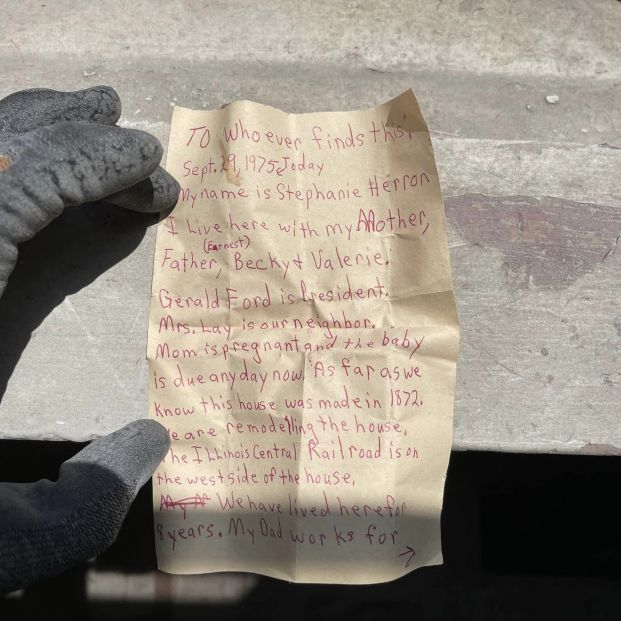 To Whoever finds this,
Sept. 29, 1975 Today
My name is Stephanie Herron
I Live here with my Mother,
(Earnest)
Father, Becky + Valerie.
Gerald Ford is President.
Mrs. Lay is our neighbor.
Mom is pregnant and the baby
is due any day now. As far as we
know this house was made in 1872.
We are remodelling the house.
The Illinois Central Railroad is on
the west side of the house.
We have lived here for
8 years. My Dad works for →